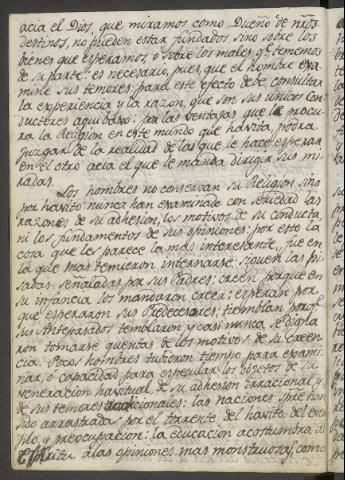 acia el Dios, que miramos como Dueño de ntros
destinos, no pueden estar fundados sino sobre los
bienes que esperamos, o sobre los males qe. tememos
de su parte: es necesario, pues, que el hombre exa
mine sus temores; para este efecto debe consultar
la experiencia y la razon, que son sus unicos con
ductores aqui baxo: por las ventajas que le procu
ra la Religion en este mundo que havita, podra
juzgar de la realidad de las que le hace esperar
en el otro acia el que le manda dirigir sus mi
radas.
Los hombres no conservan su Religion sino
por havito nunca han examinado con seriedad las
razones de su adhesion, los motivos de su conducta,
ni los fundamentos de sus opiniones: por esto la
cosa que les parece la mas interesante, fue en
la que mas temieron internarse: siguen las pi
sadas señaladas por sus Padres; creen porque en
su infancia los mandaron creer: esperan por
que esperaron sus Predecesores; tiemblan porqe.
sus Antepasados temblaron y casi nunca se digna
ron tomarse quentas de los motivos de su creen
cia. Pocos hombres tubieron tiempo para exami
nar, o capacidad para especular los objetos de su
veneracion havitual, de su adhesion irracional, y
de sus temores tradicionales: las naciones spre. han
sido arrastradas por el torrente del havito del exem
plo, y preocupacion: la educacion acostumbra al
Espiritu a las opiniones mas monstruosas, como